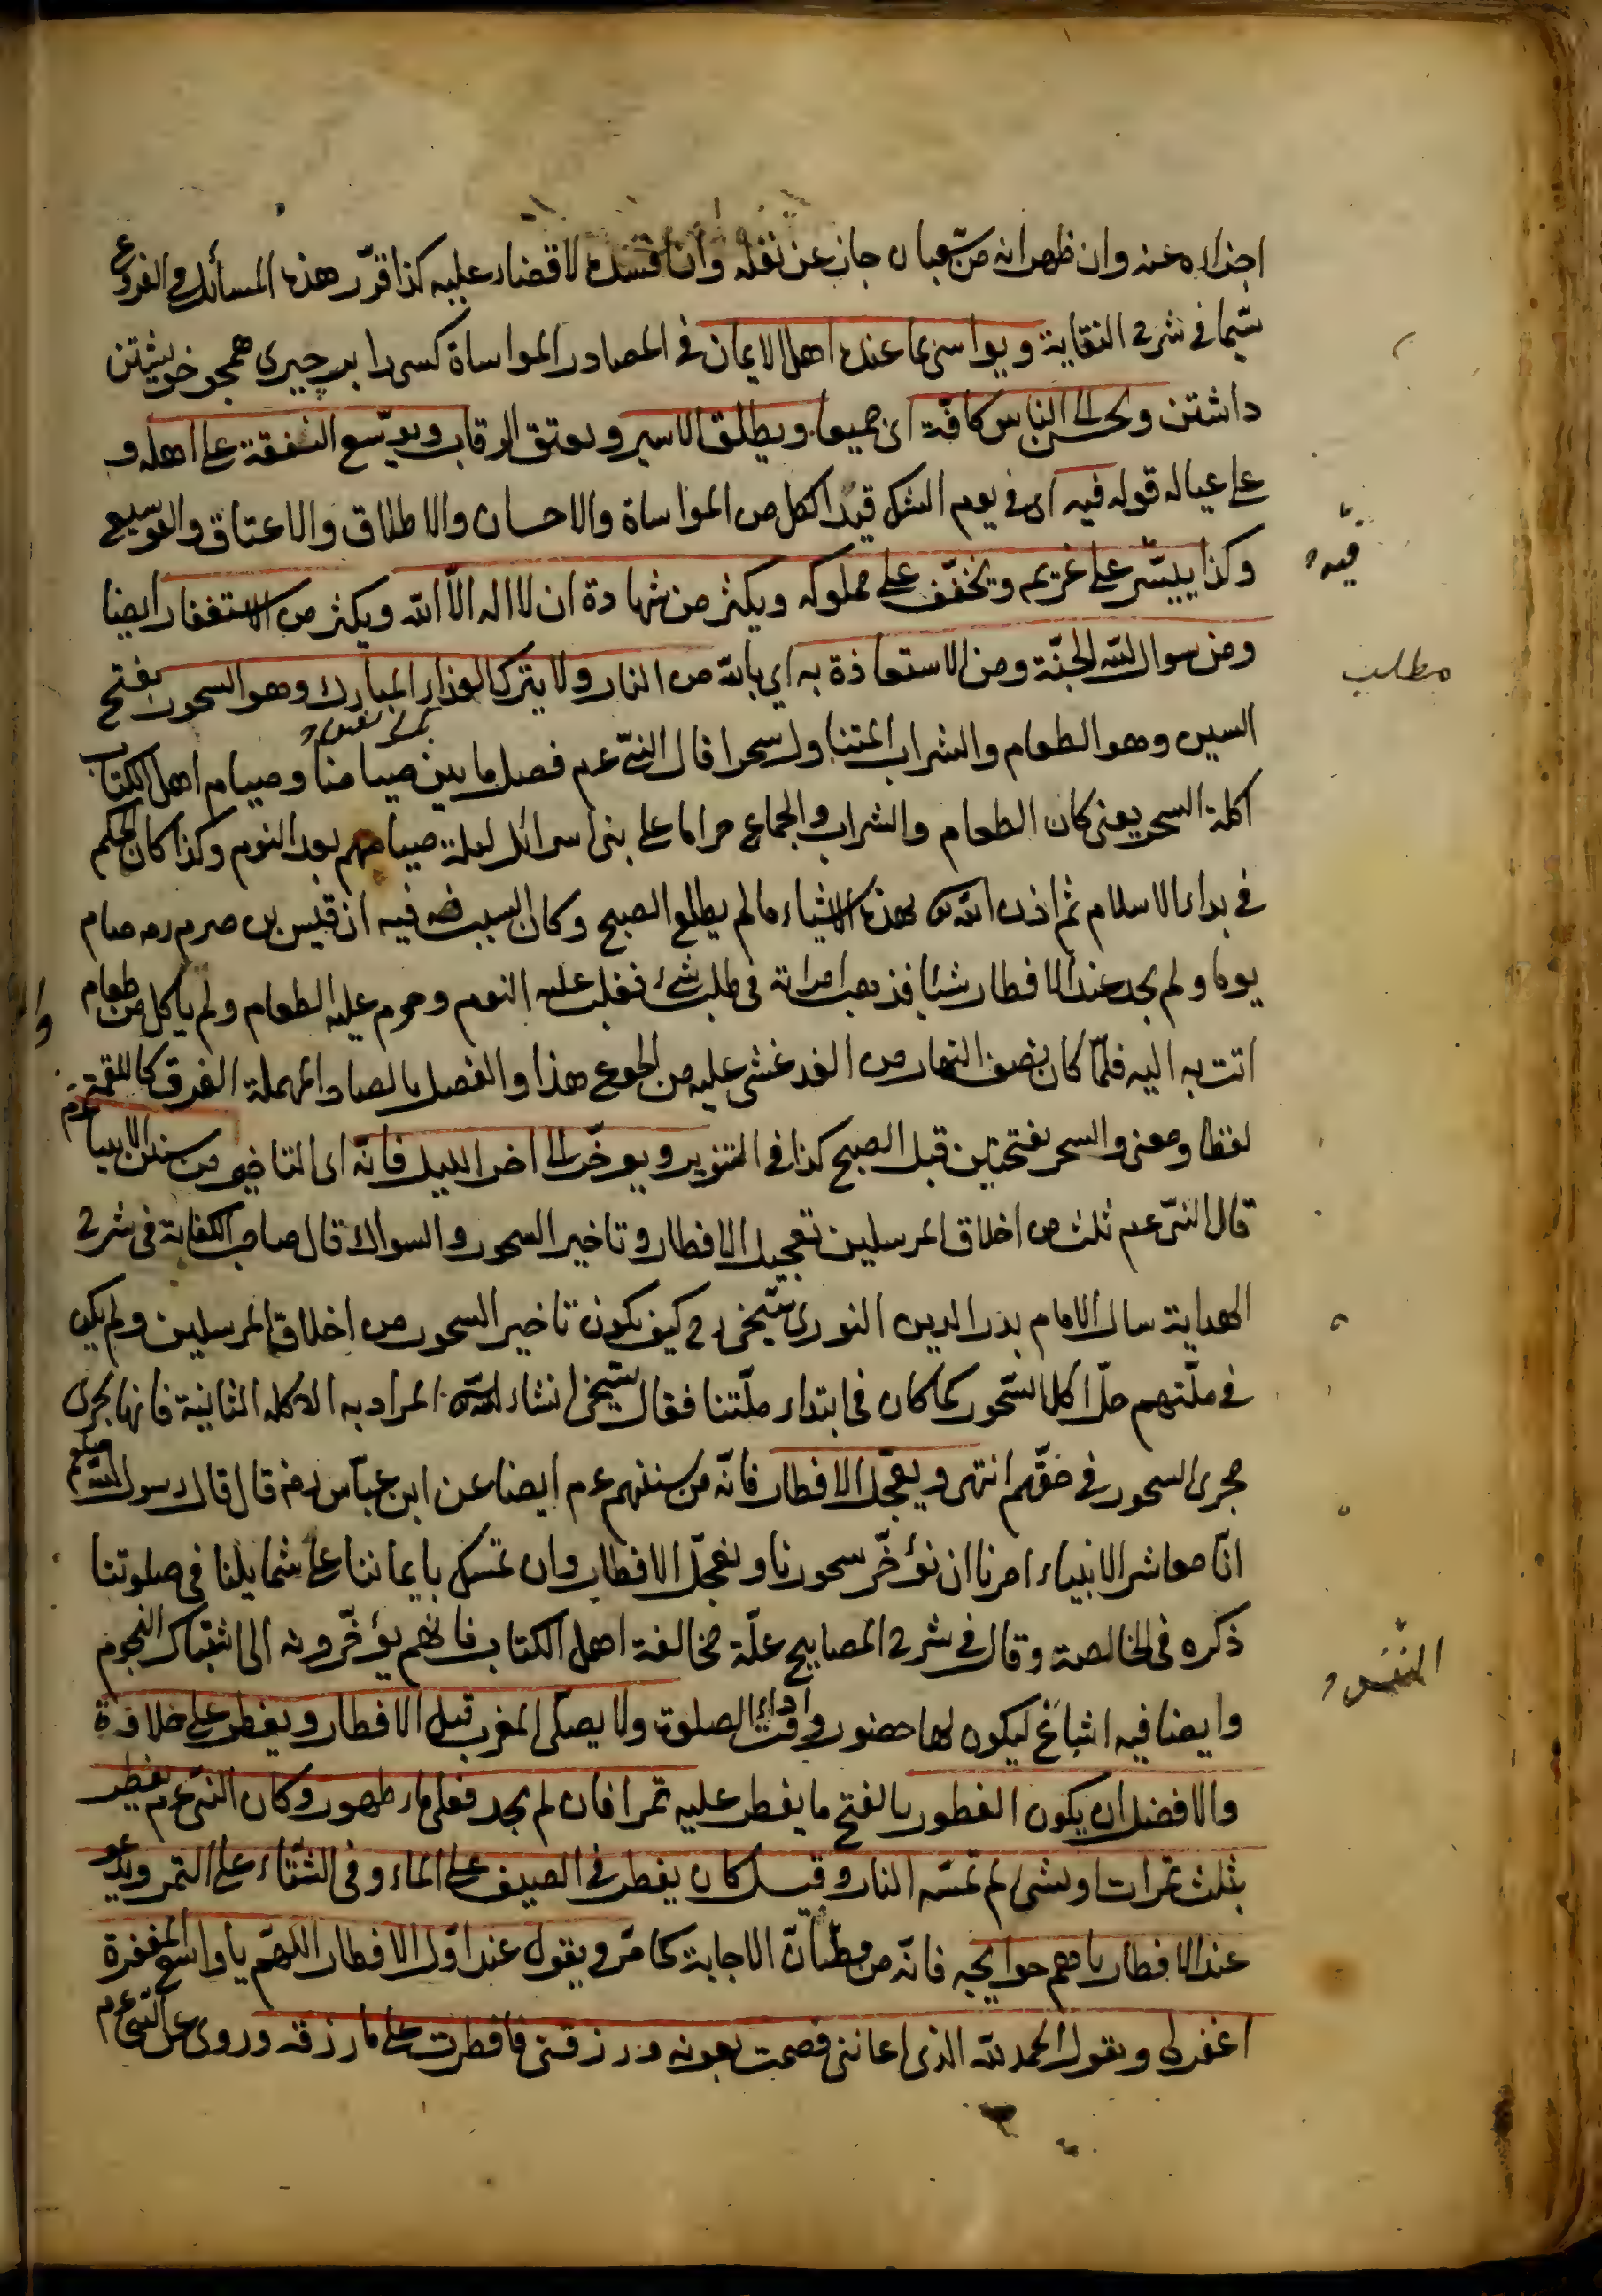 اجزاه عنه وان ظهر انه من شعبان جاز عن نفله وان افسده لا قضاء عليه كذا قرّر هذه المسائل في الفروع
سيّما في شرح النقاية ويواسى بما عنده اهل الايمان في المصادر المواساة كسى را بر چيزى همچو خويشتن
داشتن ويحسن الى الناس كافّة اى جميعا ويطلق الاسير ويعتق الرقاب ويوسّع النفقة على اهله و
على عياله قوله فيه اى في يوم الشك قيد الكل من المواساة والاحسان والاطلاق والاعتاق والتوسيع
فيه
وكذا ييسّر على غريم ويخفّف على مملوكه ويكثر من شهادة ان لا اله الّا اللّه ويكثر من الاستغفار ايضا
ومن سوال اللّه الجنّة ومن الاستعاذة به اي باللّه من النار ولا يترك الغذاء المبارك وهو السحور بفتح
مطلب
السين وهو الطعام والشراب المتناول سحرا قال النبّى عم فصل ما بين صيامنا وصيام اهل الكتاب
اكلة السحر يعنى كان الطعام والشراب والجماع حراما على بنى اسرائل ليلة صيامهم بعد النوم وكذا كان الحكم
في بداء الاسلام ثم اذن اللّه بهذه الاشياء ما لم يطلع الصبح وكان السبب فيه ان قيس بن صرم رم صام
يوما ولم يجد عند الافطار شيئا فذهب امراته في طلب شئ فغلب عليه النوم وحرم عليه الطعام ولم ياكل من طعام
اتت به اليه فلمّا كان نصف النهار من الغد غشى عليه من الجوع هذا والفصل بالصاد المهملة الفرق كاللقمة
لفظا ومعنى والسحر بفتحتين قبل الصبح كذا في التنوير ويوخّر الى اخر الليل فانّه اى التاخير من سنن الانبياء عم
قال النبّى عم ثلث من اخلاق المرسلين تعجيل الافطار وتاخير السحور والسواك قال صاحب الكفاية في شرح
الهداية سال الامام بدر الدين النورى شيخى رح كيف يكون تاخير السحور من اخلاق المرسلين ولم يكن
في ملّتهم حلّ اكل السّحور كما كان في ابتداء ملّتنا فقال شيخى انشاء اللّه المراد به الاكلة الثانية فانها تجرى
مجرى السحور في حقّهم انتهى ويعجّل الافطار فانّه من سننهم عم ايضا عن ابن عبّاس رض قال قال رسول اللّه صلعم
انّا معاشر الانبياء امرنا ان نؤخّر سحورنا ونعجّل الافطار وان نمسك بايماننا على شمايلنا في صلوتنا
ذكره في الخالصة وقال في شرح المصابيح علّة مخالفة اهل الكتاب فانهم يؤخّرونه الى اشتباك النجوم
وايضا فيه اشباع ليكون لها حضور وقت اداء الصلوة ولا يصلّى المغرب قبل الافطار ويفطر على حلاوة
والافضل ان يكون الفطور بالفتح ما يفطر عليه تمرا فان لم يجد فعلى ماء طهور وكان النبّى عم يفطر
بثلث تمرات او بشئ لم تمسّه النار وقيل كان يفطر في الصيف على الماء وفى الشّتاء على التمر ويدعو
عند الافطار باهم حوايجه فانّه من مظانّ الاجابة كما مرّ ويقول عند اوّل الافطار اللهمّ يا واسع المغفرة
اغفرلى ويقول الحمد للّه الذى اعاننى فصمت بعونه ورزقنى فافطرت على ما رزقه وروى عن النبّى عم